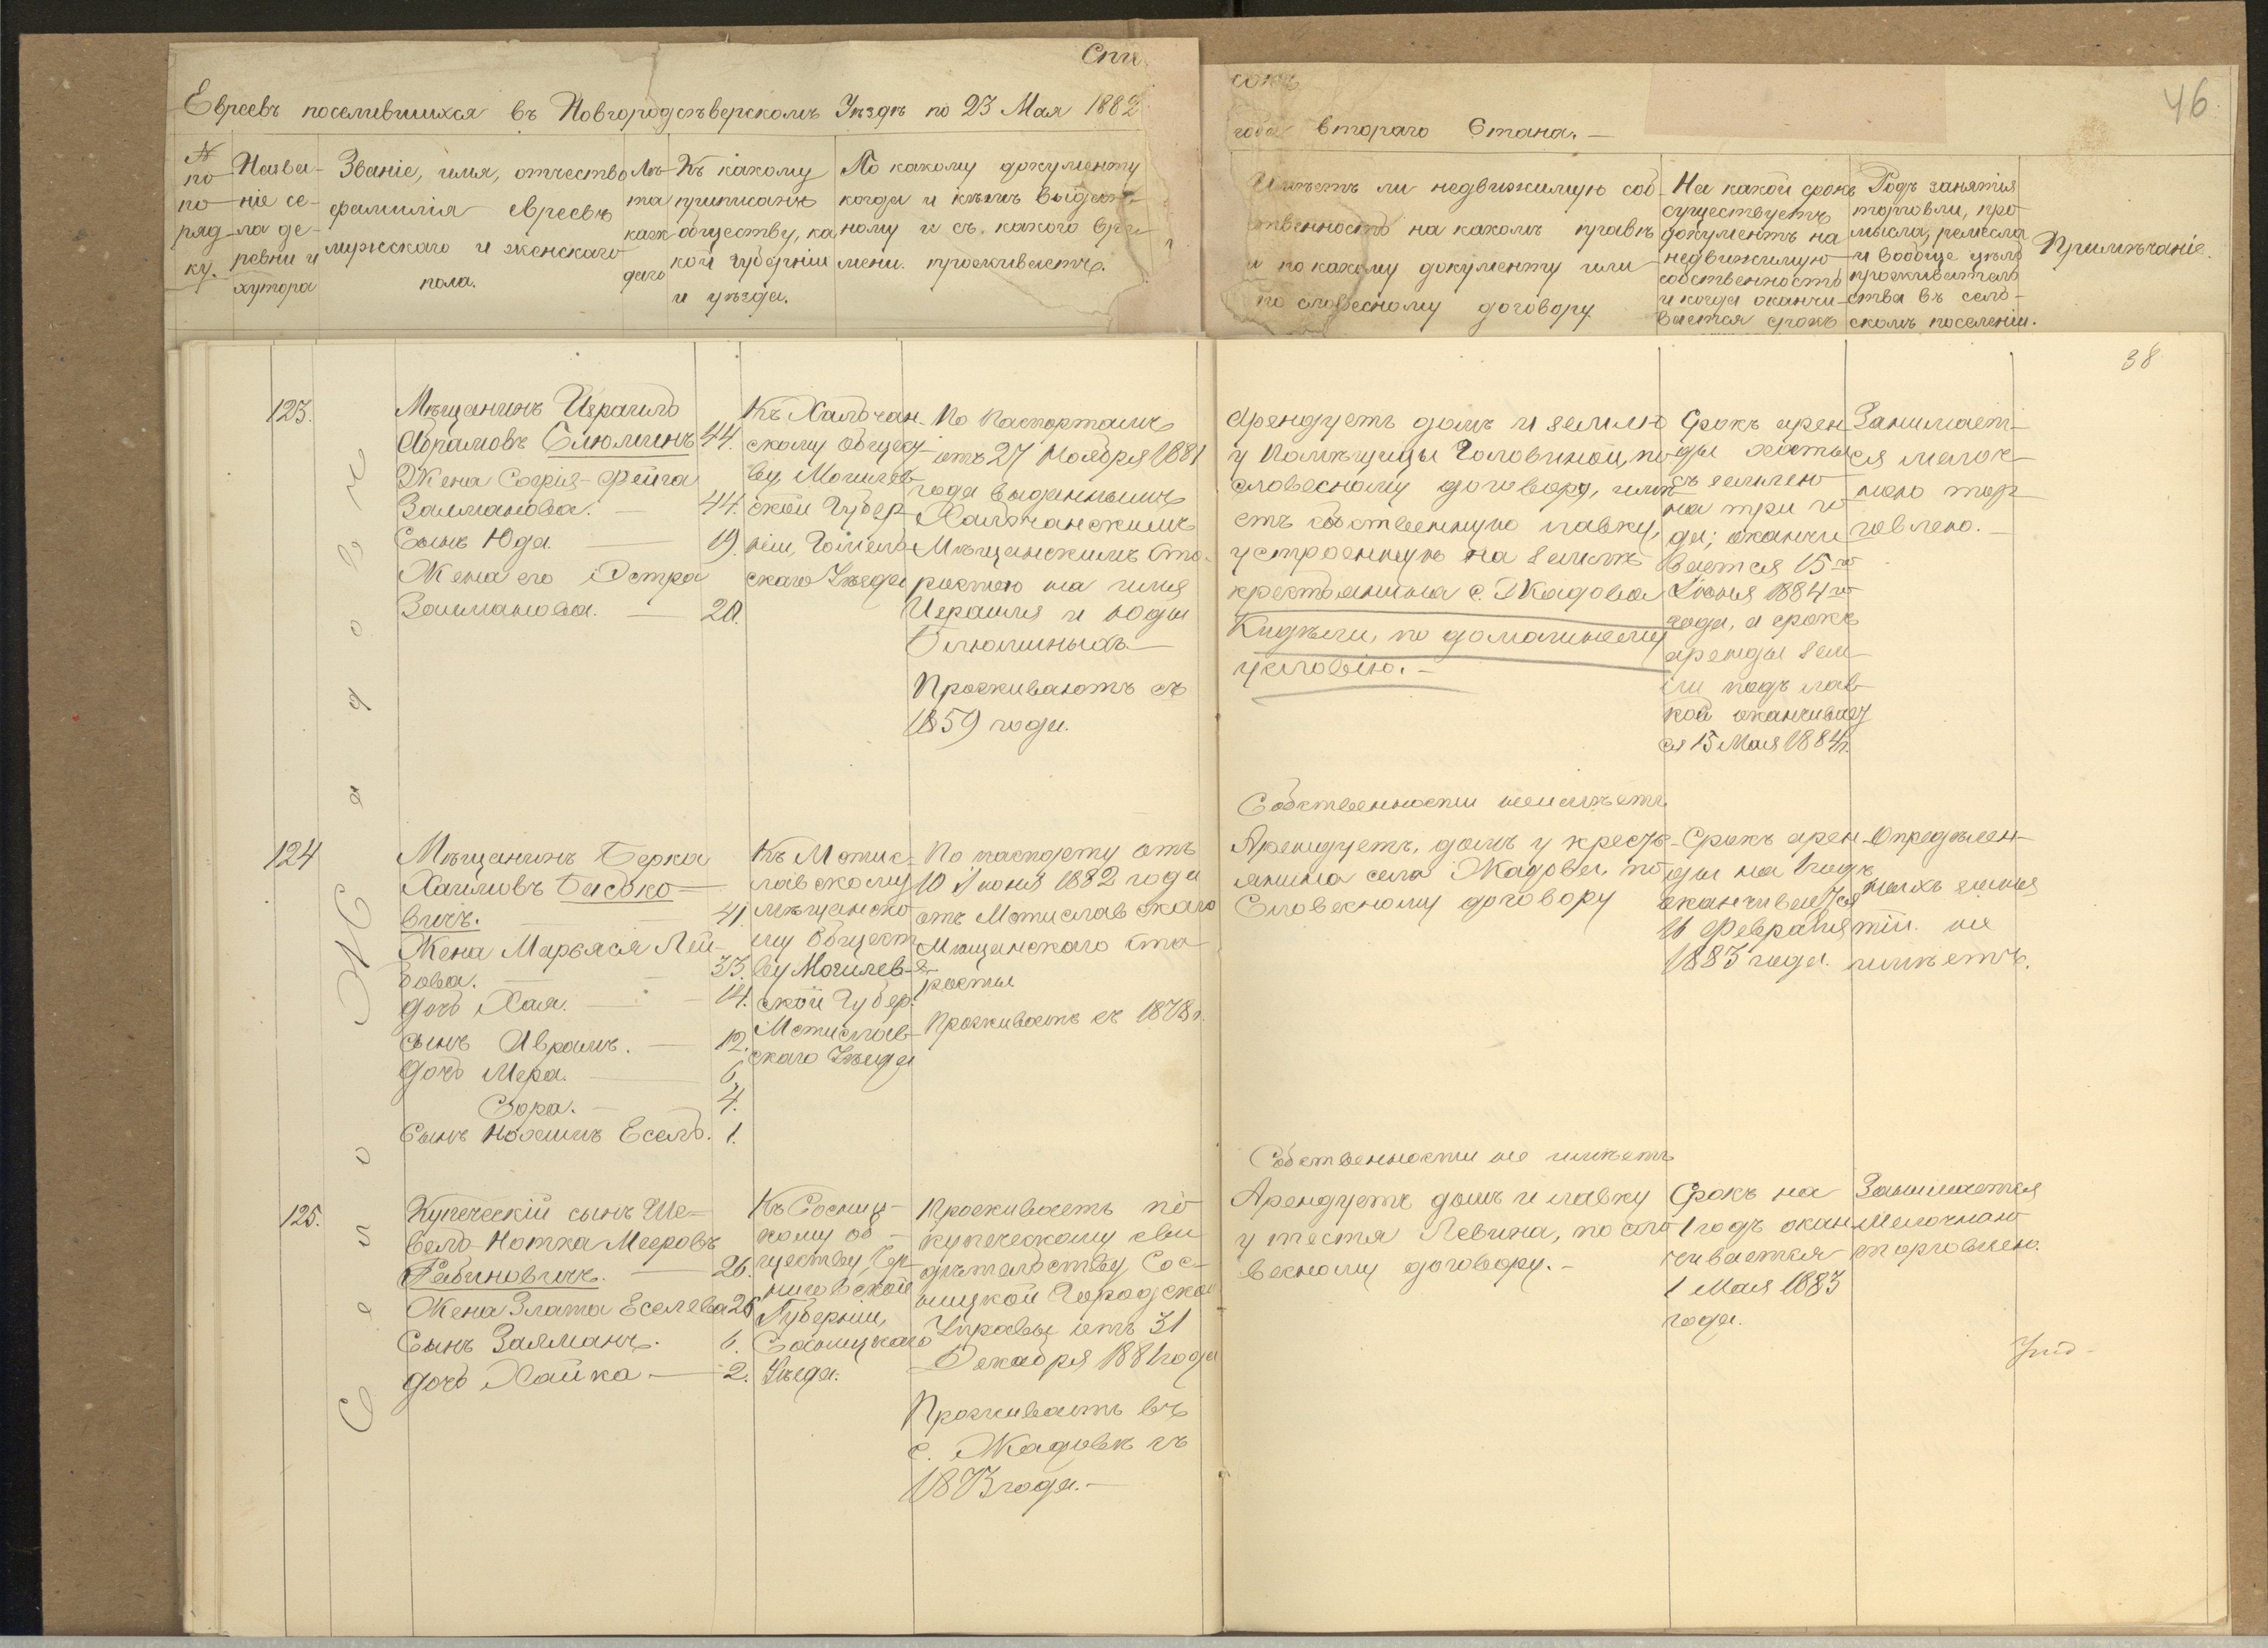 Списокъ
Евреевъ поселившихся въ Новгородсѣверскомъ Уѣздѣ по 23 Мая 1882
года втораго Стана.
46
№ по поряд ку.
Названіе села деревни и хутора
Званіе, имя, отчество
фамилія евреевъ
мужскаго и женскаго
пола.
Лѣта каждаго
Къ какому
приписанъ
обществу, ка
кой губерніи
и уѣзда.
По какому документу
когда и кѣмъ выдан-
ному и съ какого вре-
мени проживаетъ.
Имѣетъ ли недвижимую соб-
ственность на какомъ правѣ
и по какому документу или
по словесному договору
На какой срокъ
существуетъ
документъ на
недвижимую
собственность
и когда оканчи-
вается срокъ
Родъ занятія
торговли, про
мысла, ремесла
и вообще цѣль
проживатель
ства въ сель-
скомъ поселеніи.
Примѣчаніе.
38
Село Жадовѣ
123.
Мѣщанинъ Израиль
Абрамовъ Блюминъ 44.
Жена Софія-Фейга
Залманова. — 44.
Сынъ Юда. — 19.
Жена его Эстра
Залманова. — 20.
Къ Халочан-
скому общест
ву, Могилев
ской Губер
ніи, Гомель-
скаго Уѣзда
По паспортамъ
отъ 27 Ноября 1881
года выданнымъ
Халочанскимъ
Мѣщанскимъ Ста-
ростою на имя
Израиля и Юды
Блюминыхъ
Проживаютъ съ
1859 года.
Арендуетъ домъ и землю
у Помѣщицы Головиной, по
словесному договору, имѣ
етъ собственную лавку,
устроенную на землѣ
крестьянина с. Жадова
по домашнему
условію. —
Срокъ арен
ды хаты
съ землею
на три го
да; оканчи
вается 15го
Іюня 1884го
года, а срокъ
аренды зем
ли подъ лав
кой оканчивает
ся 15 Мая 1884г.
Занимает-
ся мелоч-
ною тор
говлею. —
124
Мѣщанинъ Берка
Хаимовъ Бисько-
вичъ. — 41.
Жена Марьяся Лей-
бова. — 33.
дочь Хая. — 14.
сынъ Абрамъ. — 12.
Дочь Мера. — 6
Сора. — 4.
Сынъ Нохимъ Есель. 1.
Къ Мстис-
лавскому
мѣщанско
му Общест
ву Могилев-
ской Губер.
Мстислав-
скаго Уѣзда
По паспорту отъ
10 Іюня 1882 года
отъ Мстиславскаго
Мѣщанскаго Ста-
росты
Проживаетъ съ 1878 г.
Собственности неимѣетъ
Арендуетъ, домъ у кресть-
янина села Жадова, по
Словесному договору
Срокъ арен
ды на 1 годъ
оканчивается
16 Февраля
1883 года.
Опредѣлен-
ныхъ заня
тій не
имѣетъ.
125.
Купеческій сынъ Ше-
вель-Нотка Мееровъ
Рабиновичъ. — 26.
Жена Злата Еселева 26
Сынъ Залманъ. 6.
дочь Хайка — 2.
Къ Сосниц-
кому об-
ществу, Чер
ниговской
Губерніи,
Сосницкаго
Уѣзда.
Проживаетъ по
купеческому сви
дѣтельству Сос-
ницкой Городской
Управы отъ 31
Декабря 1881 года
Проживаетъ въ
с. Жадовѣ съ
1873 года. —
Собственности не имѣетъ
Арендуетъ домъ и лавку
у тестя Левина, по сло
весному договору. —
Срокъ на
1 годъ окан
чивается
1 Мая 1883
года.
Занимается
мелочною
торговлею.